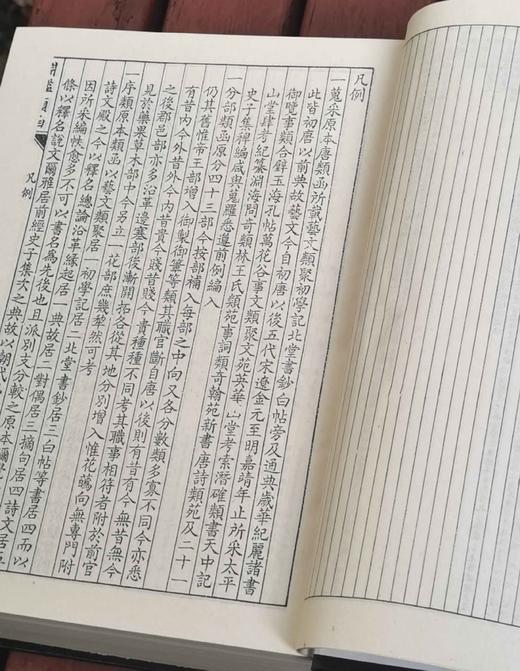 凡例
一蒐采原本唐類函所載藝文類聚初學記北堂書鈔白帖旁及通典歲華紀麗諸書
此皆初唐以前典故藝文今自初唐以後五代宋遼金元至明嘉靖年止所采太平
御覽事類合璧玉海孔帖萬花谷事文類聚文苑英華山堂考索潛確類書天中記
山堂肆考紀纂淵海問奇類林王氏類苑事詞類奇翰苑新書唐詩類苑及二十一
史子集稗編咸與蒐羅悉遵前例編入
一分部類函原分四十三部今按部補入每部之中向又各分數類多寡不同今亦悉
仍其舊惟帝王部增入御製御筆等類其職官斷自唐以後則有昔有今無昔無今
有昔內今外昔外今內昔貴今賤昔賤今貴種種不同考其職事相待者附於前官
之後郡邑部亦多沿革邊塞部後漸開拓各從其地分別增入惟花舊向無專門附
見於藥果草木部中今另立一花部庶幾犂然可考
一序類原本類函以藝文類聚居一初學記居二北堂書鈔居三白帖等書居四而以
詩文殿之今以釋名總論沿革緣起居一典故居二對偶居三摘句居四詩文居五
因所采編帙愈多不可以書名為先後也且派別文分較之原本
條以釋名說文爾雅居前經史子集次之典故以朝代
凡例